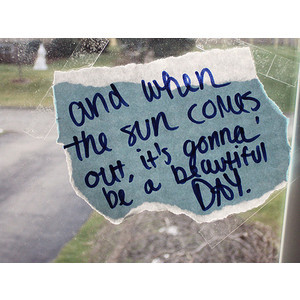 and when
the sun comes
out, it's gonna
be a beautiful
DAY.